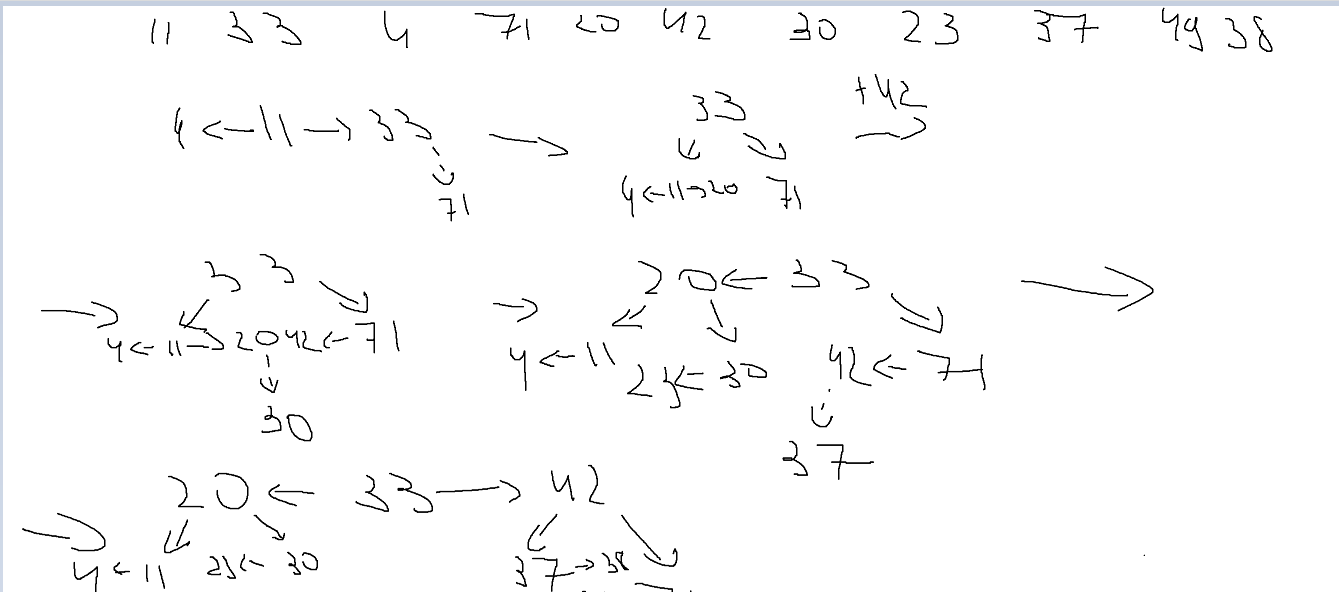 11 33 4 71 20 42 30 23 37 49 38
+42
4 ← 11 → 33 → 33
↙ ↘
71 4 ← 11 → 20 71
33 20 ← 33 →
→ ↙ ↘ → ↙ ↘ ↘
4 ← 11 → 20 42 ← 71 4 ← 11 23 ← 30 42 ← 71
↓ ↓
30 37
20 ← 33 → 42
→ ↙ ↘ ↙ ↘
4 ← 11 23 ← 30 37 → 38